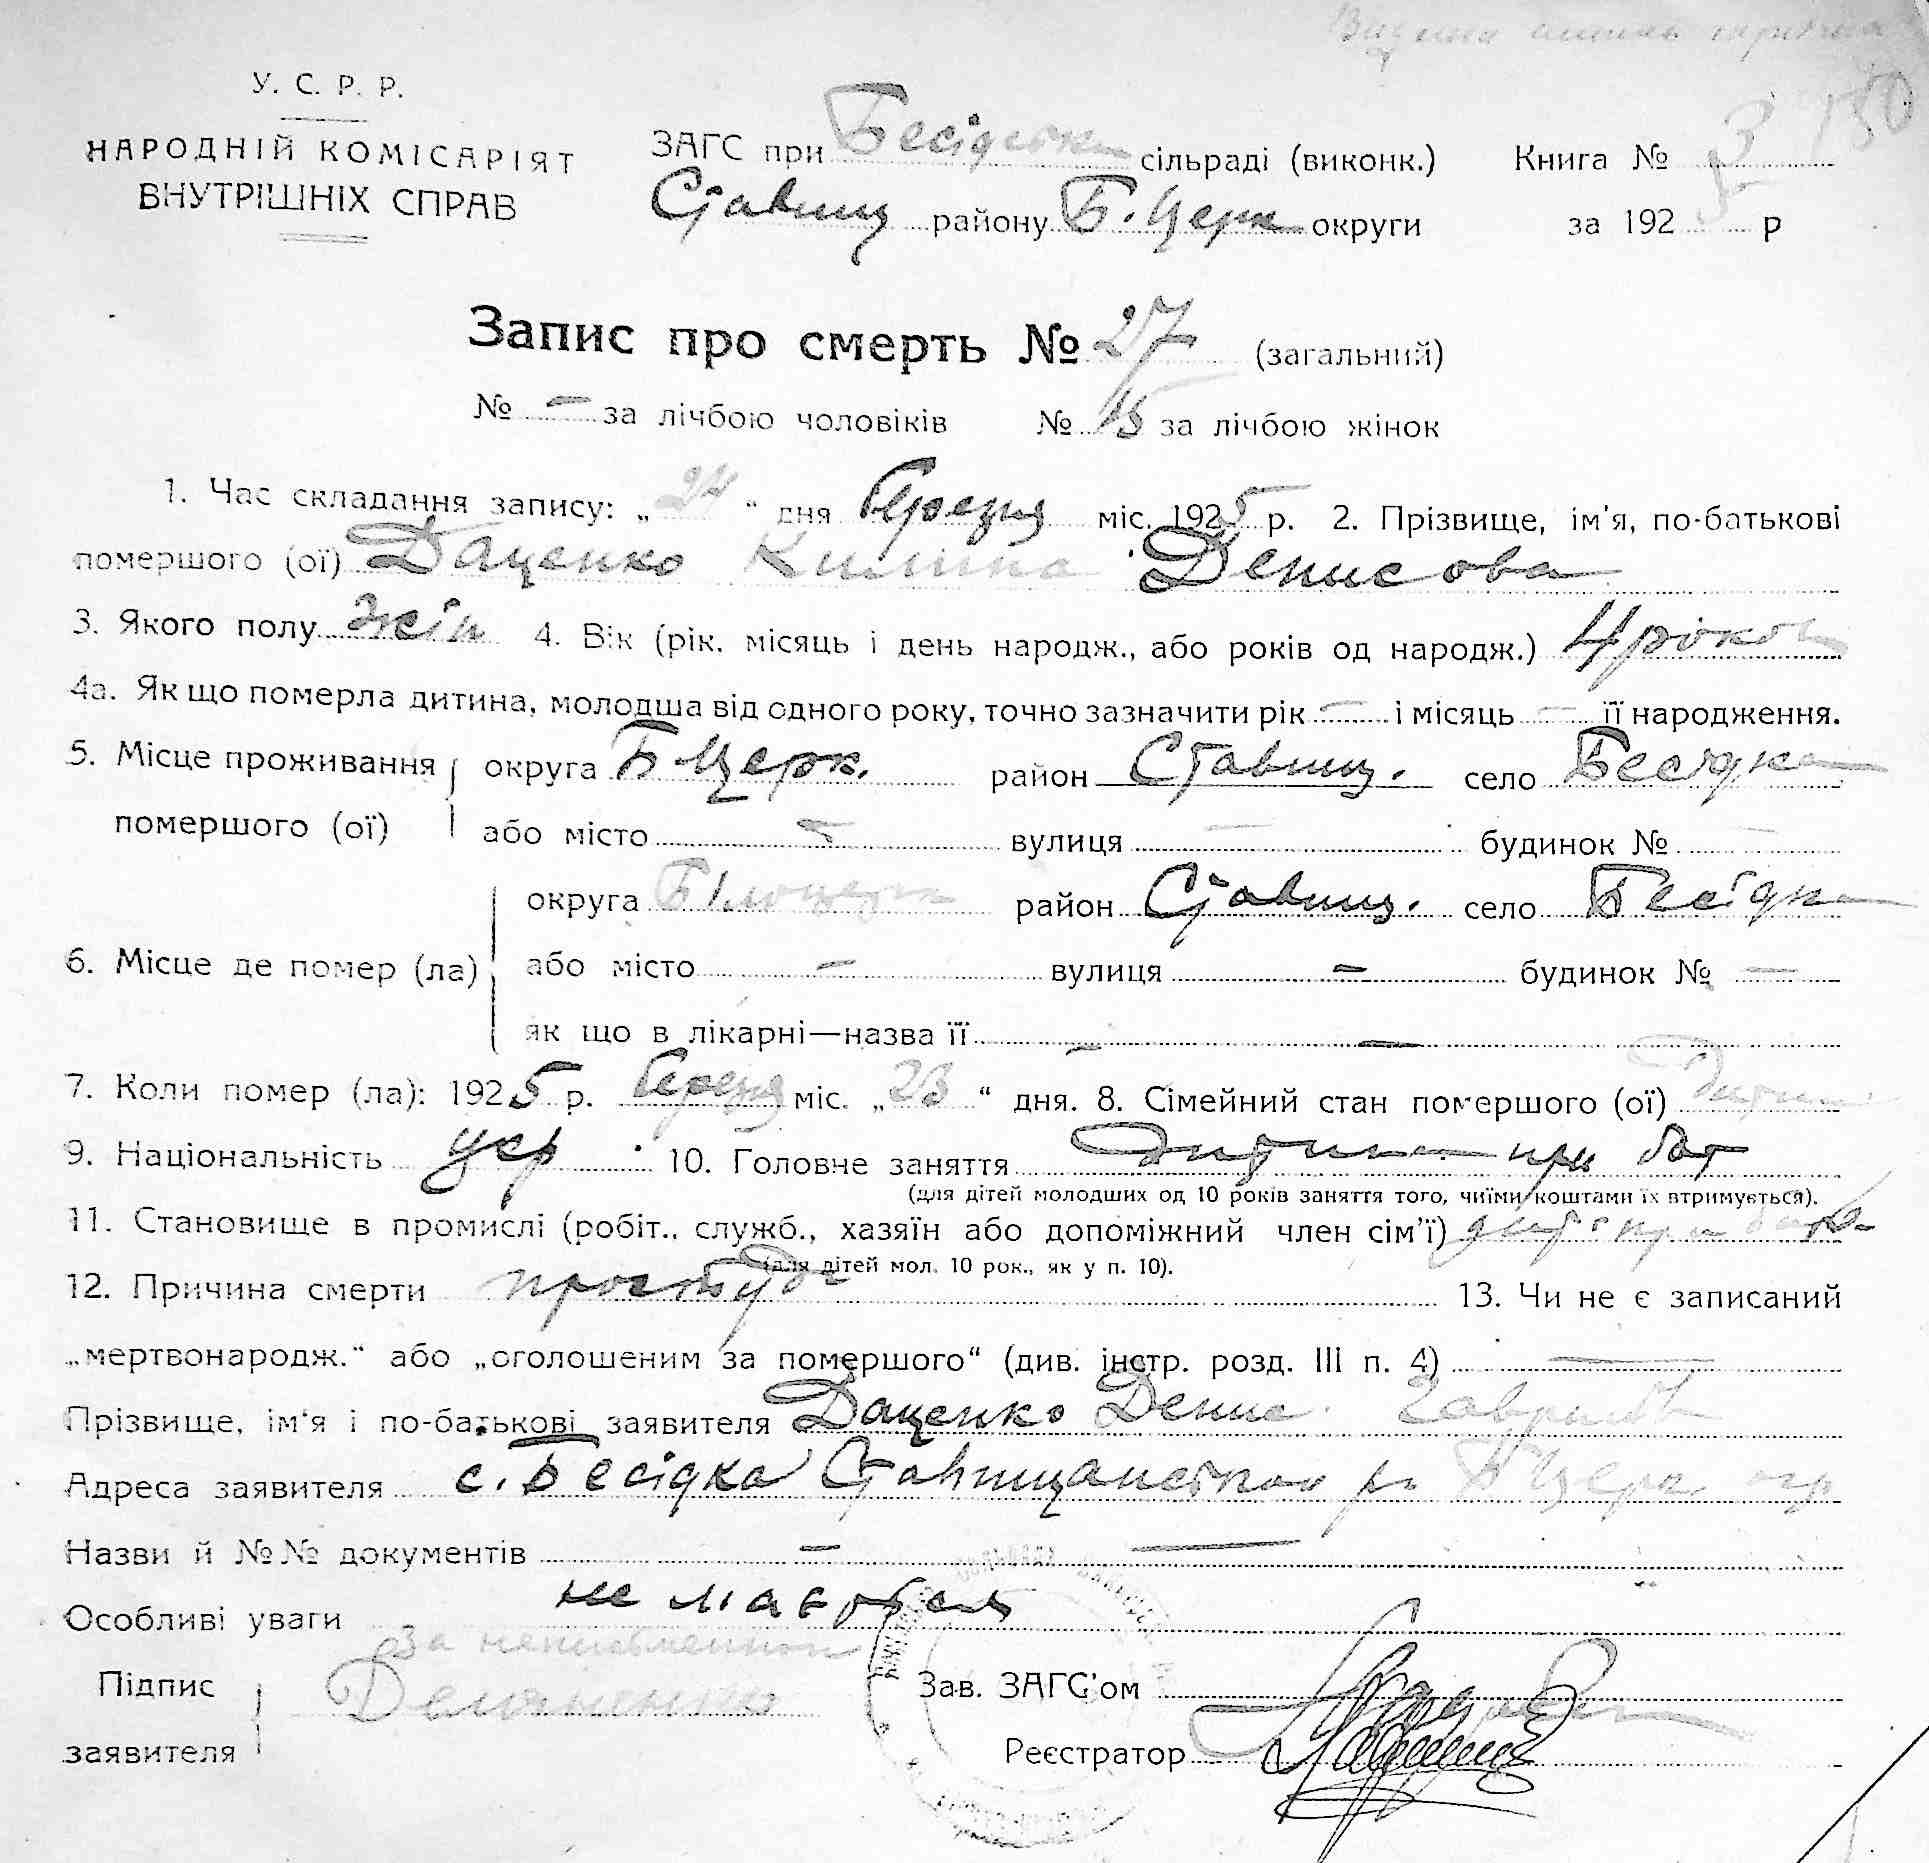 У. С. Р. Р.
НАРОДНІЙ КОМІСАРІЯТ
ВНУТРІШНІХ СПРАВ
ЗАГС при Бесідській сільраді (виконк.) Книга № 3 150
Ставищ району Б. Церк округи за 192 р
Запис про смерть № 27 (загальний)
№ – за лічбою чоловіків № 15 за лічбою жінок
1. Час складання запису: „24“ дня березня міс. 1925 р. 2. Прізвище, ім'я, по-батькові
помершого (ої) Даценко Килина Денисова
3. Якого полу жін 4. Вік (рік. місяць і день народж., або років од народж.) 4 роков
4а. Як що померла дитина, молодша від одного року, точно зазначити рік – і місяць – її народження.
5. Місце проживання округа Б Церк. район Ставищ. село Бесідка
помершого (ої) або місто – вулиця – будинок № –
округа Білоцерк район Ставищ. село Бесідка
6. Місце де помер (ла) або місто – вулиця – будинок № –
як що в лікарні—назва її – –
7. Коли помер (ла): 1925 р. березня міс. „23“ дня. 8. Сімейний стан помершого (ої) дитина
9. Національність укр 10. Головне заняття дитина при бат
(для дітей молодших од 10 років заняття того, чиїми коштами їх втримується).
11. Становище в промислі (робіт., служб., хазяїн або допоміжний член сім'ї) дит при бать
(для дітей мол. 10 рок., як у п. 10).
12. Причина смерти простуда 13. Чи не є записаний
„мертвонародж.“ або „оголошеним за помершого“ (див. інстр. розд. III п. 4) —
Прізвище, ім'я і по-батькові заявителя Даценко Денис Гаврилов
Адреса заявителя с. Бесідка Ставищанськой р. Б Церк окр
Назви й №№ документів – —
Особливі уваги не має
За неписьменной
Підпис Зав. ЗАГС'ом
заявителя Реєстратор